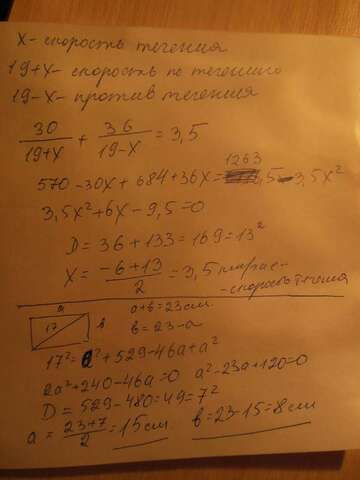 x - скорость течения
19+x - скорость по течению
19-x - против течения
30/(19+x) + 36/(19-x) = 3,5
570-30x+684+36x=1263,5-3,5x²
3,5x²+6x-9,5=0
D=36+133=169=13²
x= (-6+13)/2 = 3,5
- скорость течения
a
17
в
a+в=23см
в=23-a
17²=a²+529-46a+a²
2a²+240-46a=0 a²-23a+120=0
D=529-480=49=7²
a= (23+7)/2 =15см в=23-15=8см